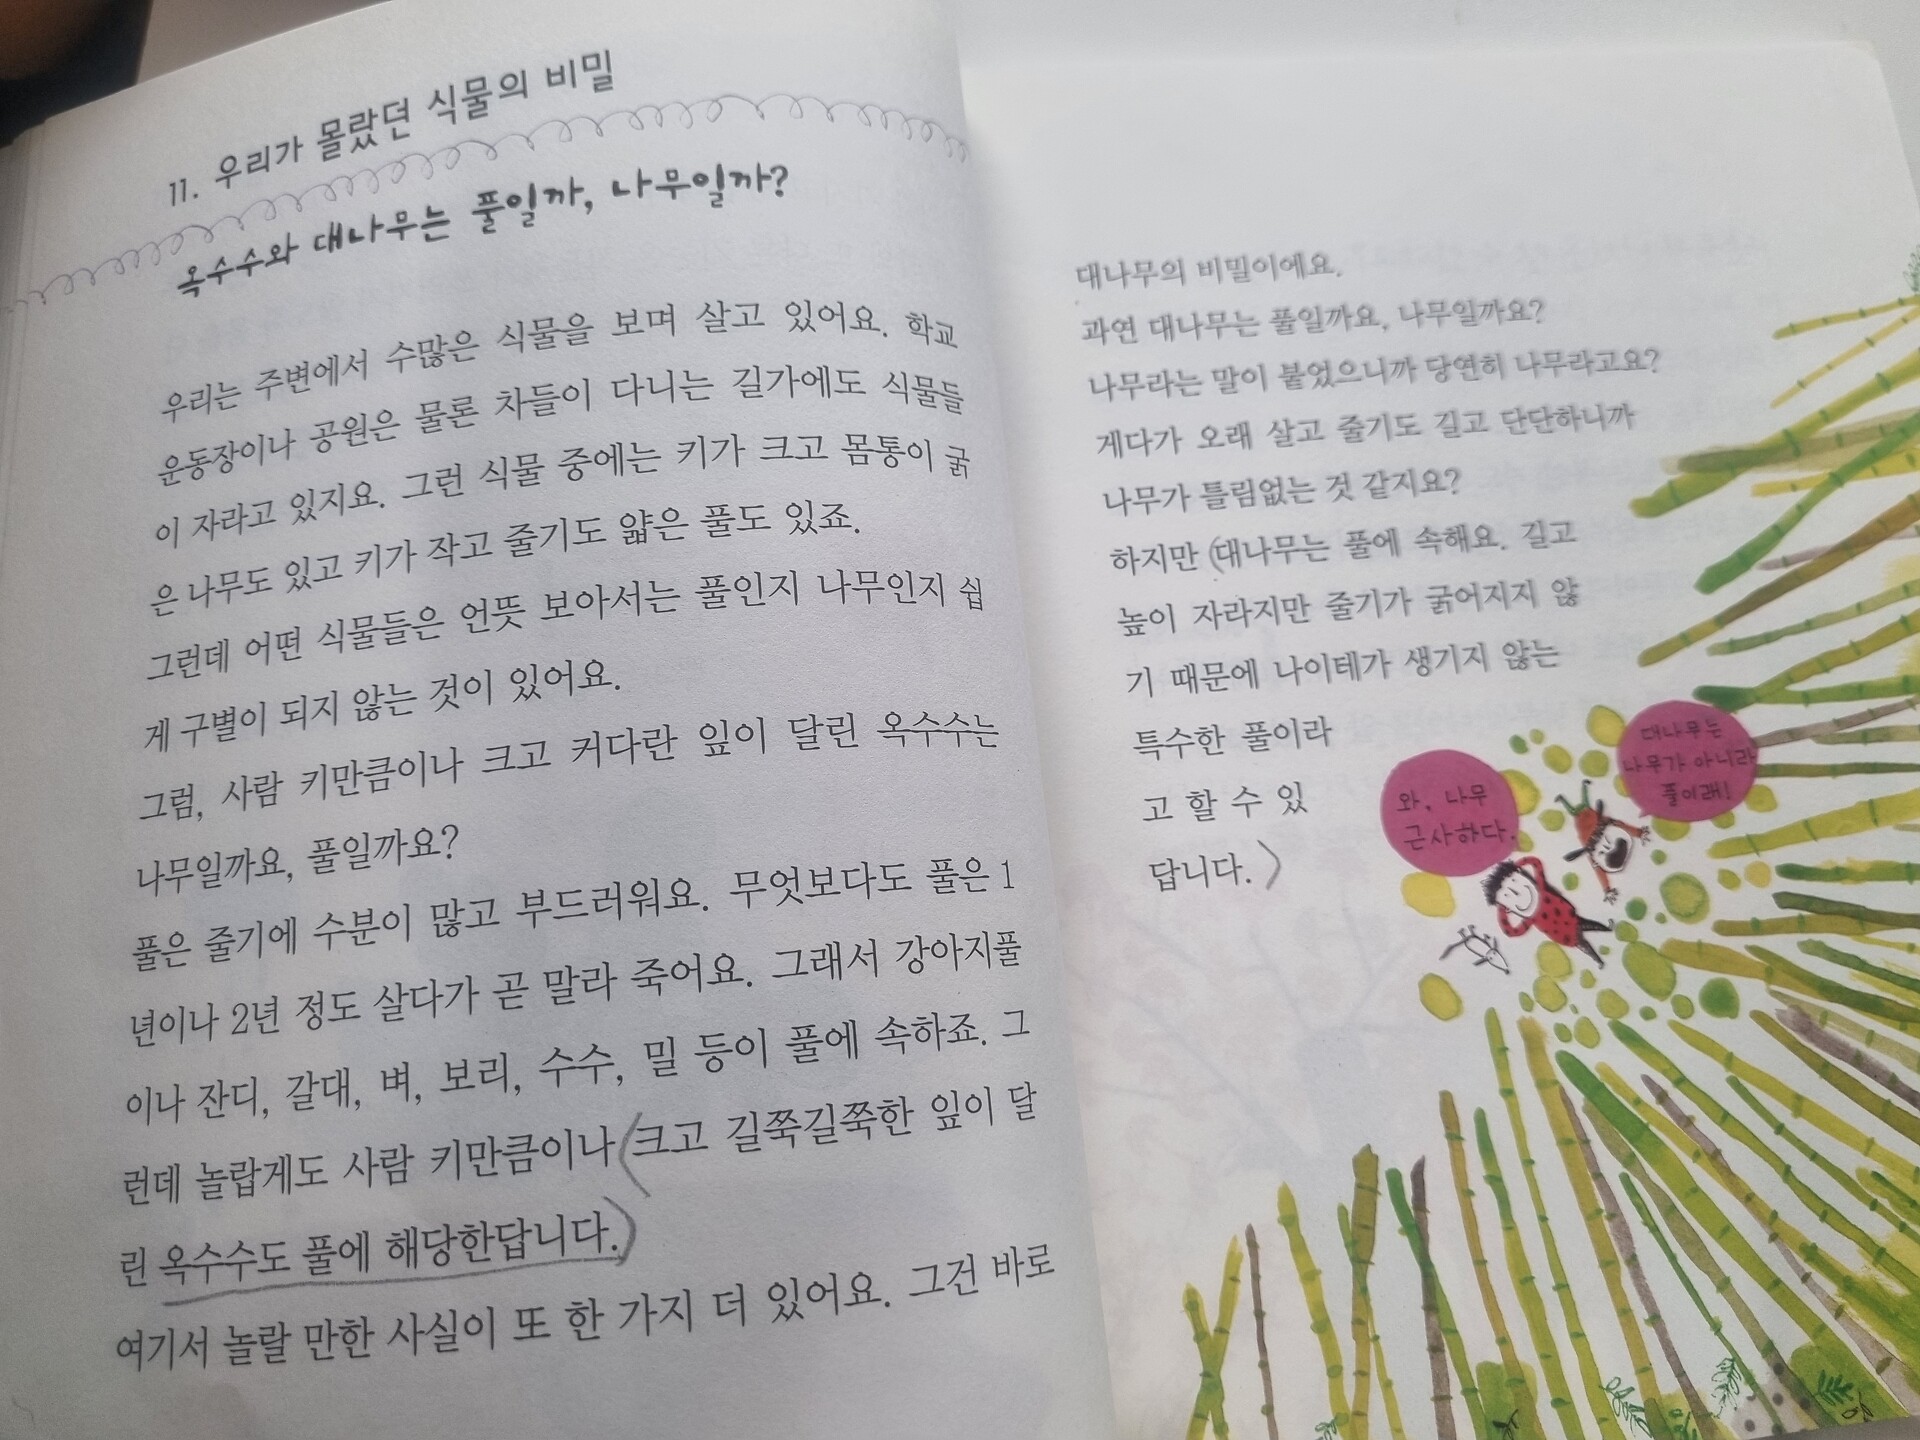 11. 우리가 몰랐던 식물의 비밀
옥수수와 대나무는 풀일까, 나무일까?
우리는 주변에서 수많은 식물을 보며 살고 있어요. 학교
운동장이나 공원은 물론 차들이 다니는 길가에도 식물들
이 자라고 있지요. 그런 식물 중에는 키가 크고 몸통이 굵
은 나무도 있고 키가 작고 줄기도 얇은 풀도 있죠.
그런데 어떤 식물들은 언뜻 보아서는 풀인지 나무인지 쉽
게 구별이 되지 않는 것이 있어요.
그럼, 사람 키만큼이나 크고 커다란 잎이 달린 옥수수는
나무일까요, 풀일까요?
풀은 줄기에 수분이 많고 부드러워요. 무엇보다도 풀은 1
년이나 2년 정도 살다가 곧 말라 죽어요. 그래서 강아지풀
이나 잔디, 갈대, 벼, 보리, 수수, 밀 등이 풀에 속하죠. 그
런데 놀랍게도 사람 키만큼이나 (크고 길쭉길쭉한 잎이 달
린 옥수수도 풀에 해당한답니다.)
여기서 놀랄 만한 사실이 또 한 가지 더 있어요. 그건 바로
대나무의 비밀이에요.
과연 대나무는 풀일까요, 나무일까요?
나무라는 말이 붙었으니까 당연히 나무라고요?
게다가 오래 살고 줄기도 길고 단단하니까
나무가 틀림없는 것 같지요?
하지만 (대나무는 풀에 속해요. 길고
높이 자라지만 줄기가 굵어지지 않
기 때문에 나이테가 생기지 않는
특수한 풀이라
고 할 수 있
답니다.)
와, 나무
근사하다.
대나무는
나무가 아니라
풀이래!